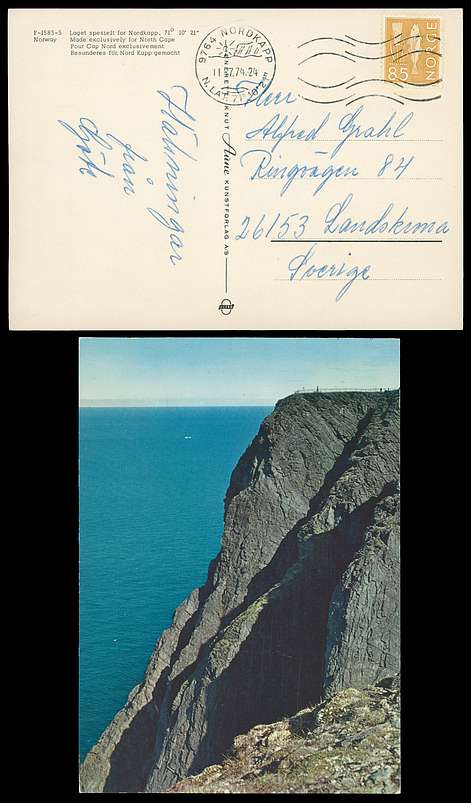 F-1585-5
Norway
Laget spesielt for Nordkapp, 71° 10' 21"
Made exclusively for North Cape
Pour Cap Nord exclusivement
Besonderes für Nord Kapp gemacht
9764 NORDKAPP
11.7.74-24
N.LAT. 71°10'21"
85
NORGE
KNUT Aune KUNSTFORLAG A/S
Hälsningar
från
Herr
Alfred Grahl
Ringvägen 84
26153 Landskrona
Sverige